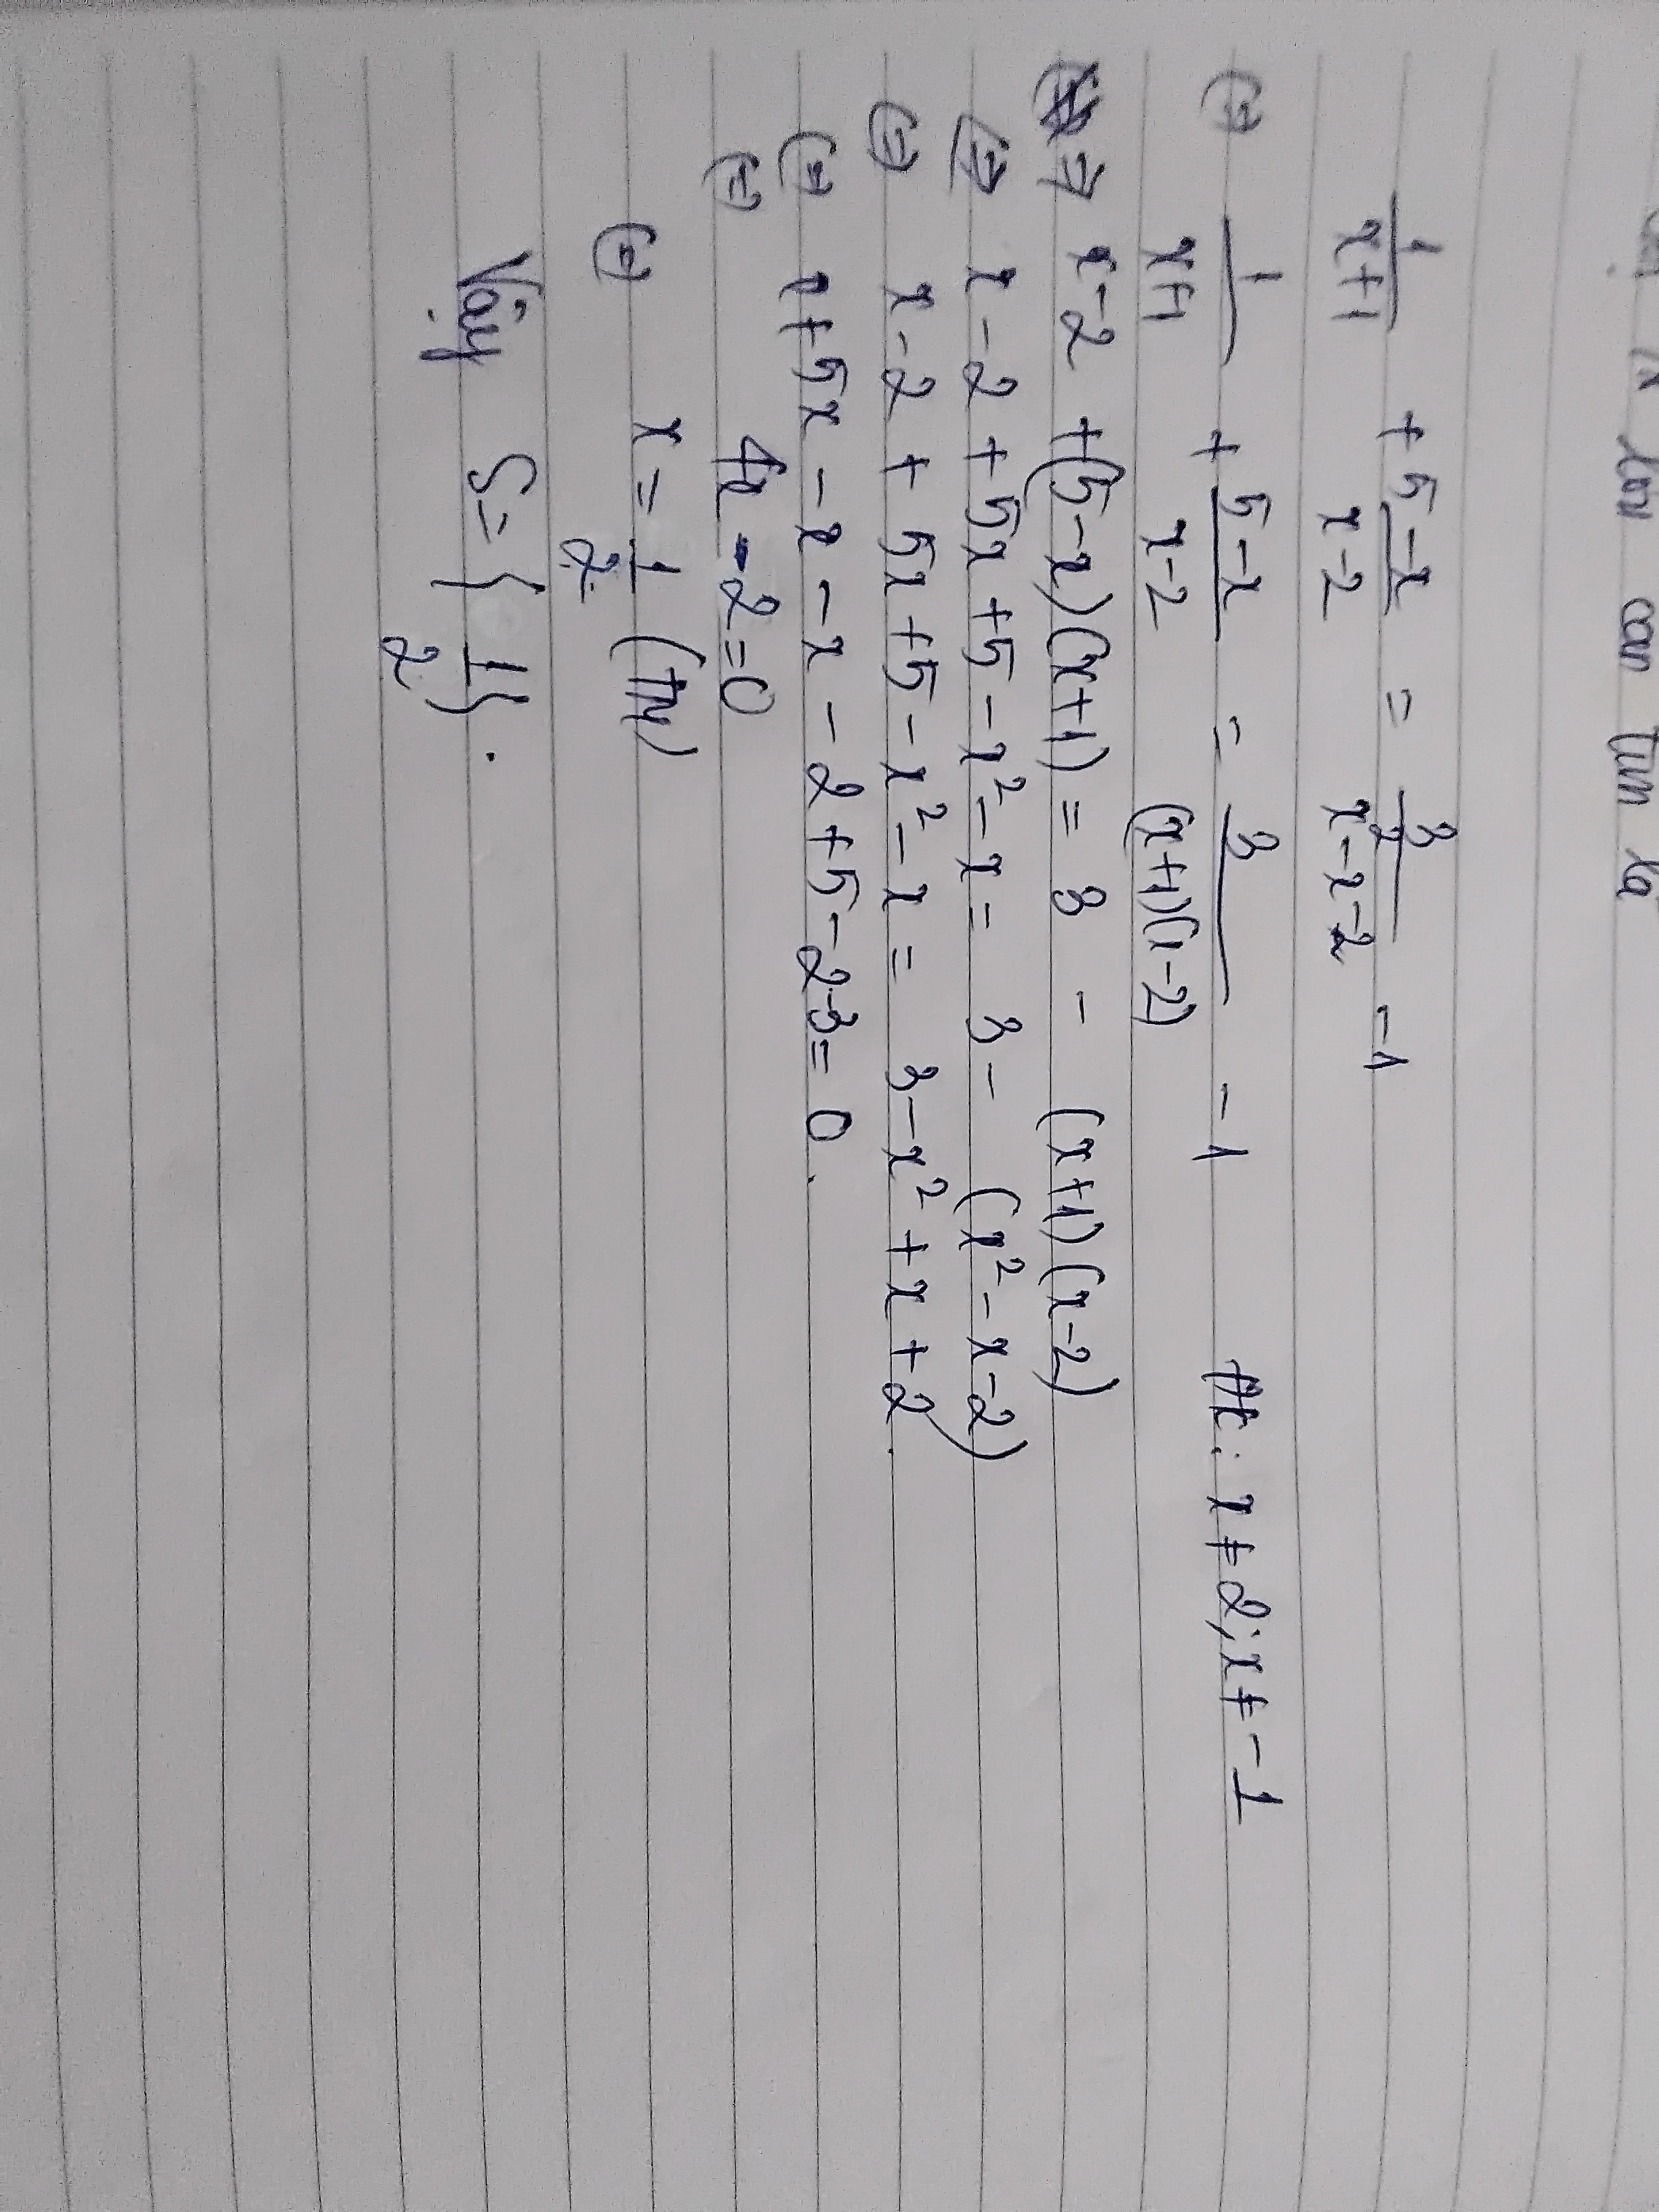 lớn cần tìm là
1/(x+1) + (5-x)/(x-2) = 3/(x²-x-2) - 1
(=) 1/(x+1) + (5-x)/(x-2) = 3/((x+1)(x-2)) - 1 đk: x ≠ 2; x ≠ -1
=> x-2 + (5-x)(x+1) = 3 - (x+1)(x-2)
(=) x-2 + 5x+5-x²-x = 3 - (x²-x-2)
(=) x-2 + 5x+5-x²-x = 3-x²+x+2.
(=) x+5x-x-x-2+5-2-3=0.
(=) 4x-2=0
(=) x = 1/2 (tm)
Vậy S={1/2}.